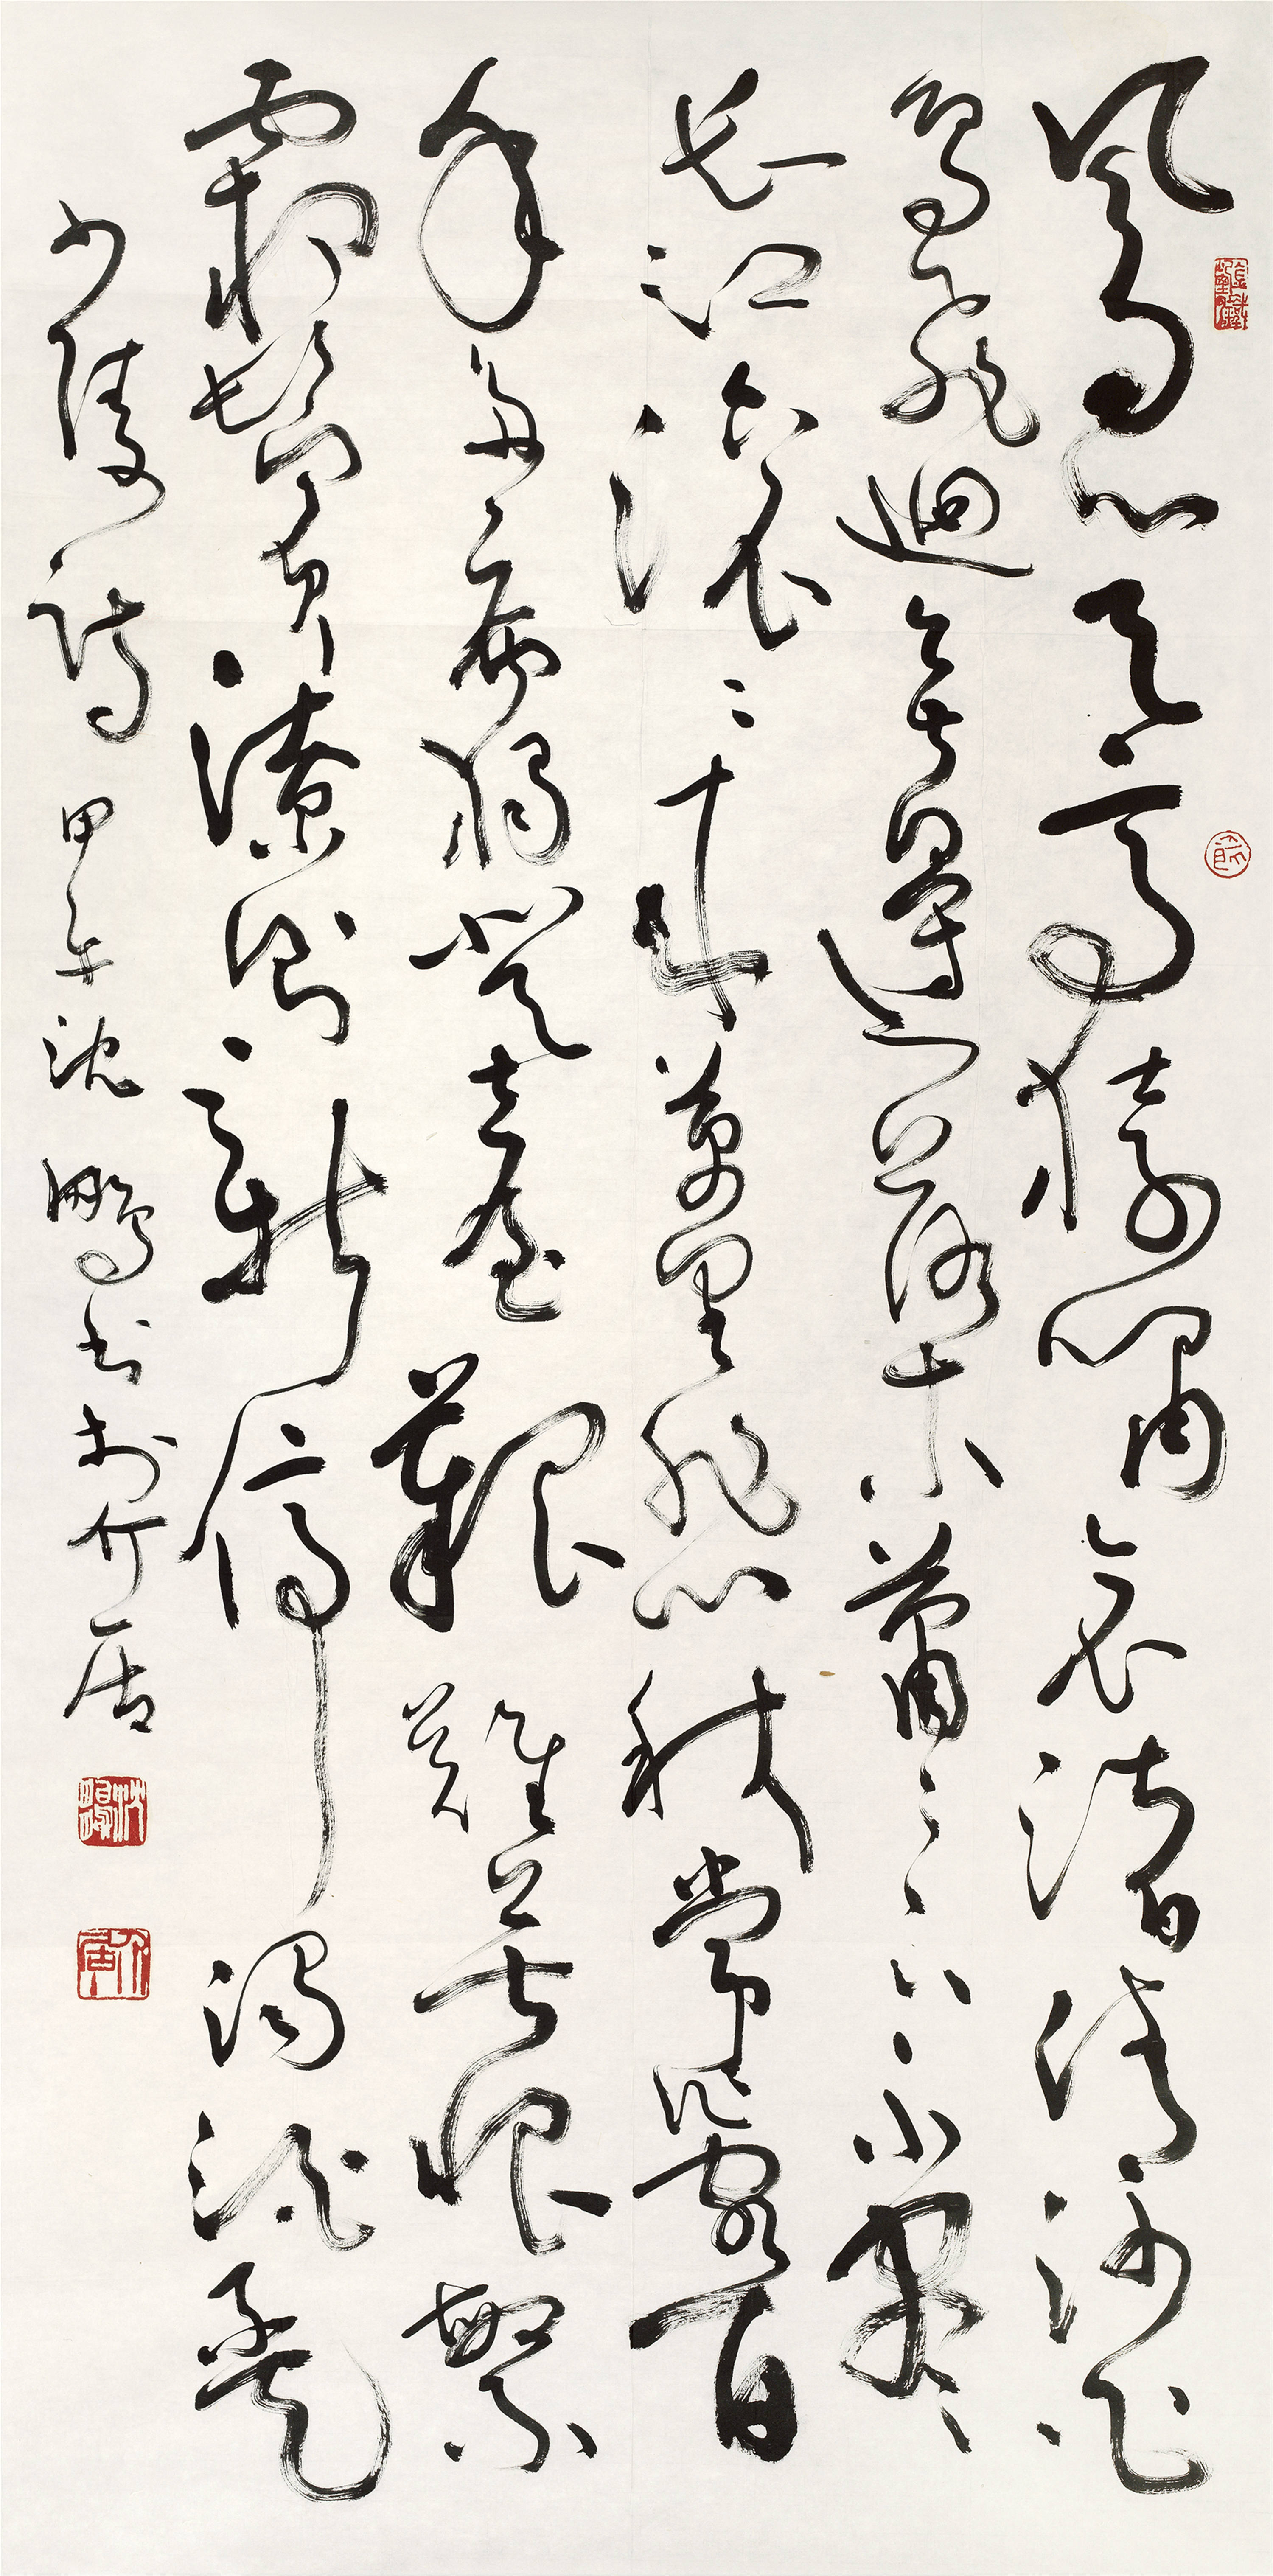 風急天高猿嘯哀渚清沙白
鳥飛迴無邊落木蕭〻下不盡
長江滾〻來萬里悲秋常作客百
年多病獨登臺艱難苦恨繁
霜鬢潦倒新停濁酒盃
少陵詩 甲午沈鵬書於介居
沈鵬
介居